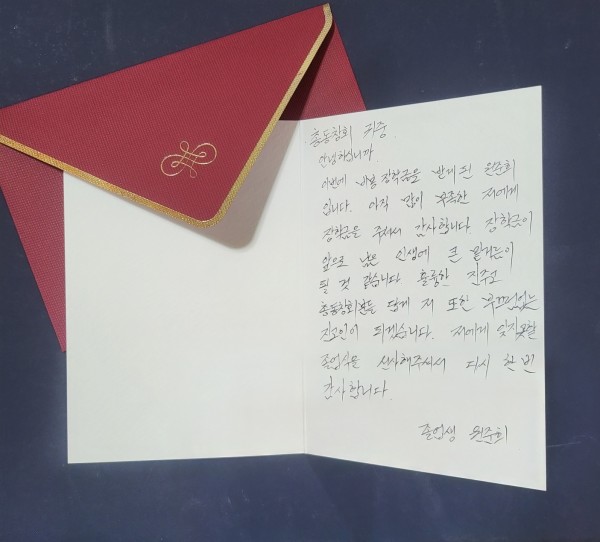 총동창회 귀중.
안녕하십니까.
이번에 비봉 장학금을 받게 된 원주희
입니다. 아직 많이 부족한 저에게
장학금을 주셔서 감사합니다 장학금이
앞으로 남은 인생에 큰 밑거름이
될 것 같습니다 훌륭한 진주고
총동창회분들 답게 저 또한 부끄럼없는
진고인이 되겠습니다. 저에게 잊지못할
졸업식을 선사해주셔서 다시 한 번
감사합니다.
졸업생 원주희